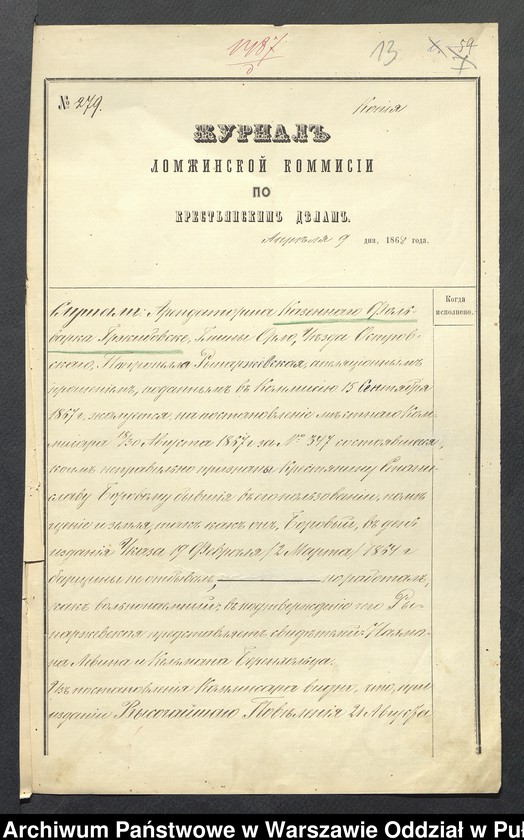 1487
13
59
№ 279.
Копія
ЖУРНАЛЪ
ЛОМЖИНСКОЙ КОММИСІИ
ПО
КРЕСТЬЯНСКИМЪ ДѢЛАМЪ.
Апрѣля 9 дня, 1868 года.
Когда
исполнено.
Слушали: Арендаторша Казеннаго Фоль-
варка, Гмины Орло, Уѣзда Островскаго,
скаго, Рынаржевская, апелляціоннымъ
прошеніемъ, поданнымъ въ Коммисію 15 Сентября
1867 г. жалуется, на постановленіе мѣстнаго Ком-
мисара 18/30 Августа 1867 г за № 347 состоявшееся,
коимъ неправильно признаны Крестьянину Стани-
славу Боровому бывшія въ его пользованіи, помѣ-
щеніе и земля, такъ какъ онъ, Боровый, въ день
изданія Указа 19 Февраля /2 Марта/ 1864 г
барщины не отбывалъ, но работалъ,
какъ вольнонаемный: въ подтвержденіе чего Ры-
наржевская представляетъ свидѣтелей:
на Левина и
Изъ постановленія Коммисара видно, что, при
изданіи Высочайшаго Повелѣнія 21 Августа
Archiwum Państwowe w Warszawie Oddział w Puł